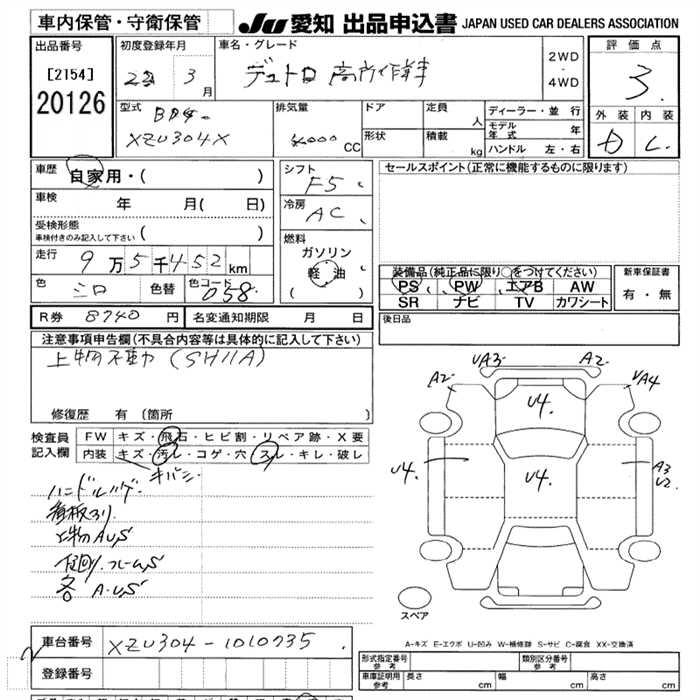 車内保管・守衛保管
JU 愛知 出品申込書 JAPAN USED CAR DEALERS ASSOCIATION
出品番号
[2154]
20126
初度登録年月
23 3月
車名・グレード
デュトロ 高所作業車
2WD
・
4WD
評価点
3
型式
XZU304X
排気量
4000 cc
ドア
形状
定員
人
積載
kg
ディーラー・並行
モデル年式 年
ハンドル 左・右
外装 内装
D C
車歴 自家用・( )
車検 年 月( 日)
受検形態
車検付きのみ記入して下さい ( )
走行 9万5千452km
色 シロ 色替 色コード 058
シフト
F5
冷房
AC
燃料
ガソリン
軽油
( )
セールスポイント(正常に機能するものに限ります)
装備品(純正品に限り○をつけてください)
PS PW エアB AW
SR ナビ TV カワシート
新車保証書
有・無
R券 8740円 名変通知期限 月 日
後日品
注意事項申告欄(不具合内容等は具体的に記入して下さい)
上物不動(SH11A)
修復歴 有(箇所 )
検査員
記入欄
FW キズ・飛石・ヒビ割・リペア跡・X要
内装 キズ・汚レ・コゲ・穴・スレ・キレ・破レ
キバミ
ハンドルハゲ
看板アリ
上物AUS
下廻りフレームS
各A.U.S
UA3 A2
A2 UA4
U4
U4 U4
A3
U2
スペア
A-キズ E-エクボ U-凹み W-補修跡 S-サビ C-腐食 XX-交換済
車台番号 XZU304-1010735
登録番号
形式指定番号
参考
類別区分番号
参考
車庫証明用
参考
長さ cm 幅 cm 高さ cm